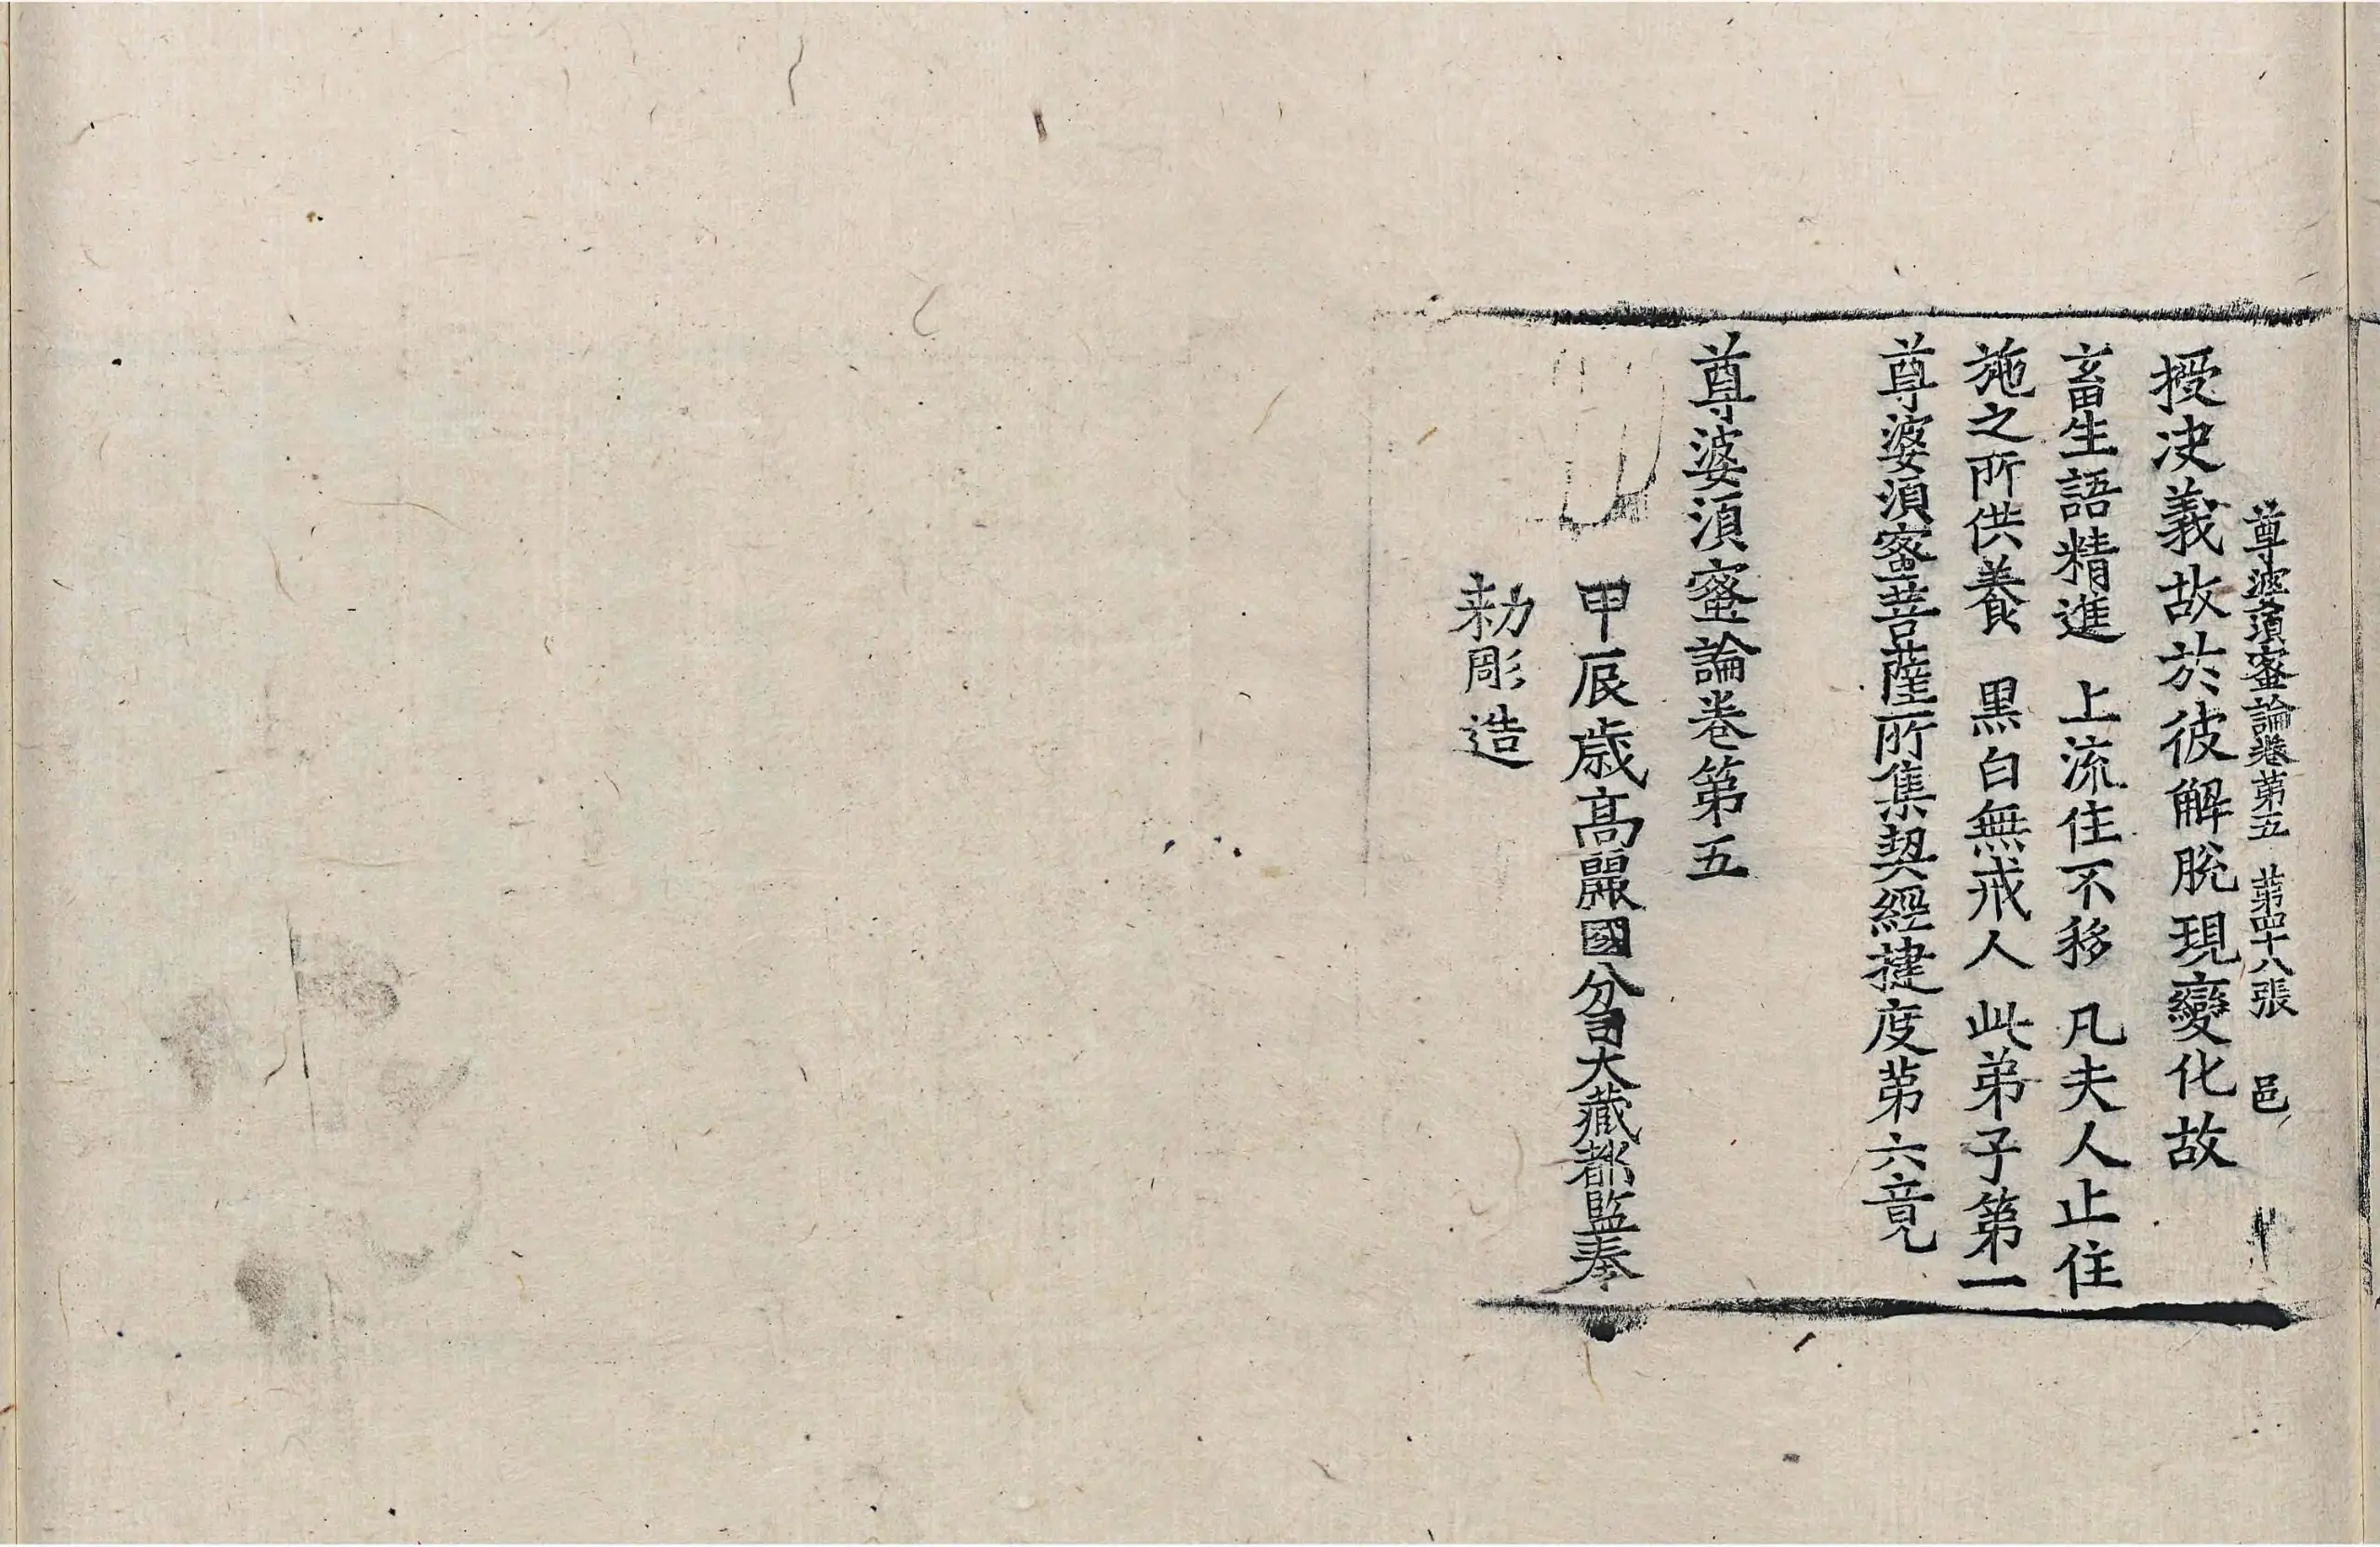 尊婆湏蜜論卷第五 第四十八張 邑
授决義故於彼解脫現變化故
畜生語精進 上流住不移 凡夫人止住
施之所供養 黒白無戒人 此弟子第一
尊婆湏蜜菩薩所集契經揵度第六竟
尊婆湏蜜論卷第五
甲辰歳髙麗國分司大藏都監奉
勅彫造